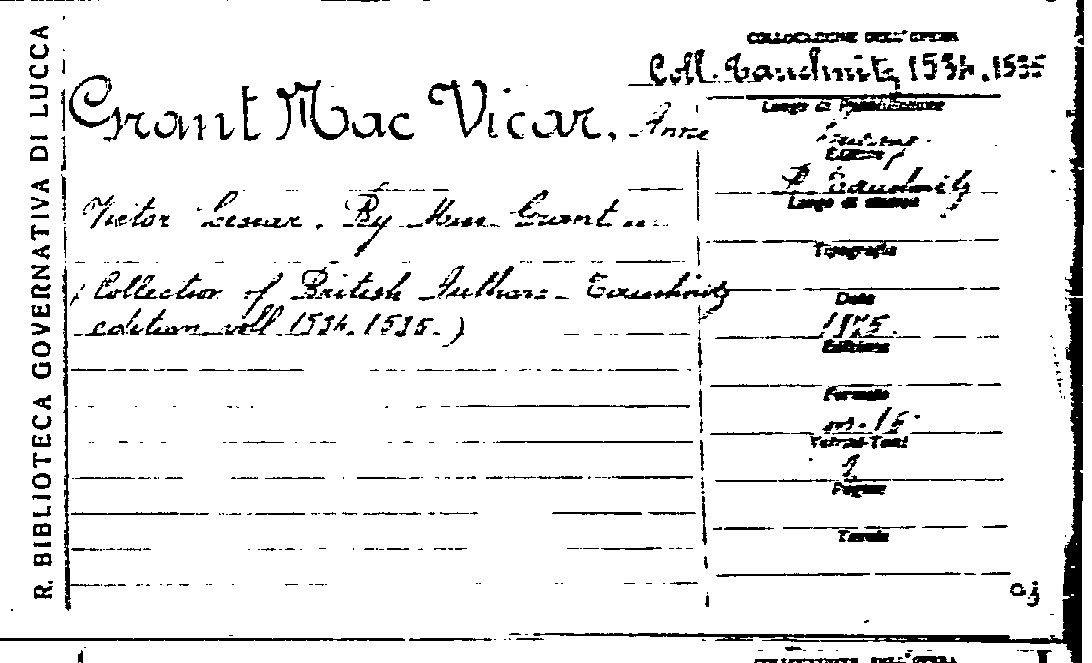 R. BIBLIOTECA GOVERNATIVA DI LUCCA
COLLOCAZIONE DELL'OPERA
Coll. Tauchnitz 1534.1535
Grant Mac Vicar, Anne
Luogo di Pubblicazione
Editore
B. Tauchnitz
Luogo di stampa
Victor Lescar. By
Grant
Tipografia
(Collection of British Authors - Tauchnitz
edition voll 1534.1535.)
Data
1875.
Edizione
Formato
in-16
Volumi-Tomi
2
Pagine
Tavole
COLLOCAZIONE DELL'OPERA